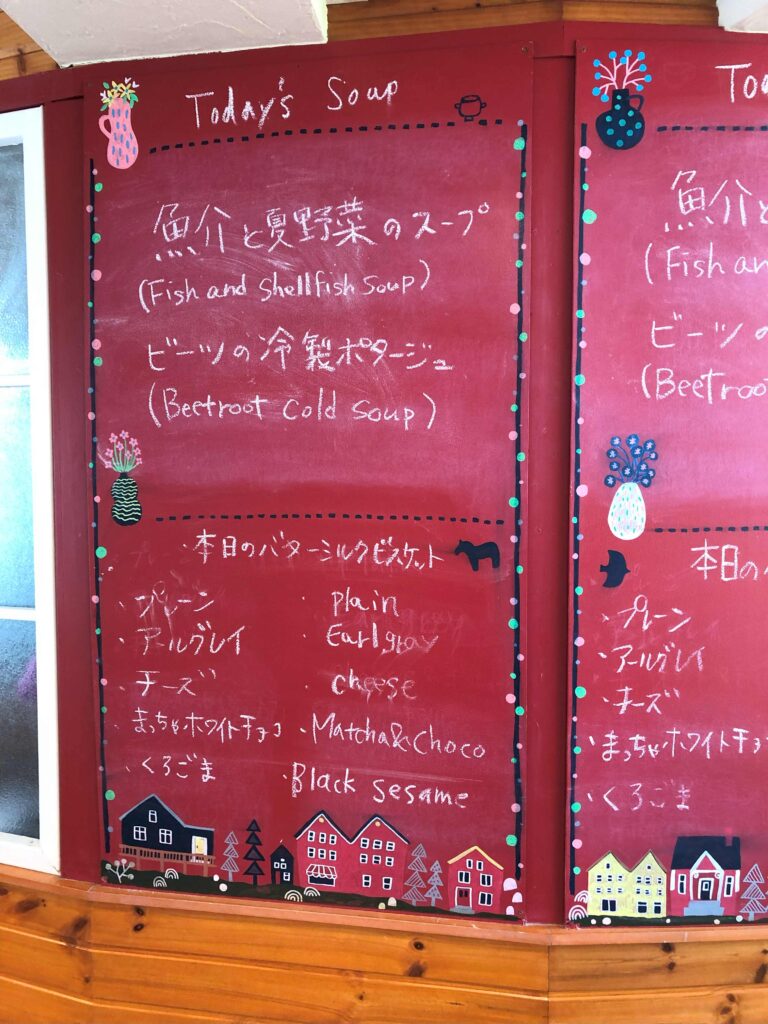 Today's Soup
魚介と夏野菜のスープ
(Fish and Shellfish Soup)
ビーツの冷製ポタージュ
(Beetroot Cold Soup)
・本日のバターミルクビスケット
・プレーン ・plain
・アールグレイ ・Earlgray
・チーズ ・cheese
・まっちゃホワイトチョコ ・Matcha&Choco
・くろごま ・Black sesame
To
魚介と
(Fish an
ビーツの
(Beetroo
本日の
・プレーン
・アールグレイ
・チーズ
・まっちゃホワイトチ
・くろごま